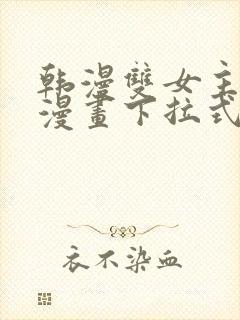 韩漫雙女主
漫畫下拉式
衣不染血